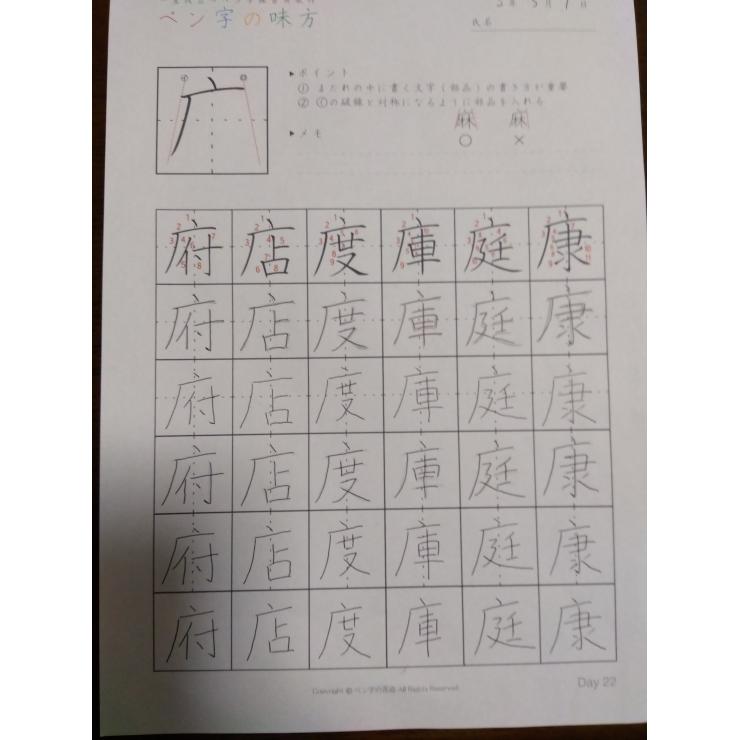 ペン字の味方
5月1日
氏名
▶ポイント
① まだれの中に書く文字(部品)の書き方が重要
② ⓒの破線と対称になるように部品を入れる
麻 麻
▶メモ
○ ×
府 店 度 庫 庭 康
府 店 度 庫 庭 康
府 店 度 庫 庭 康
府 店 度 庫 庭 康
府 店 度 庫 庭 康
府 店 度 庫 庭 康
Day 22
All Rights Reserved.